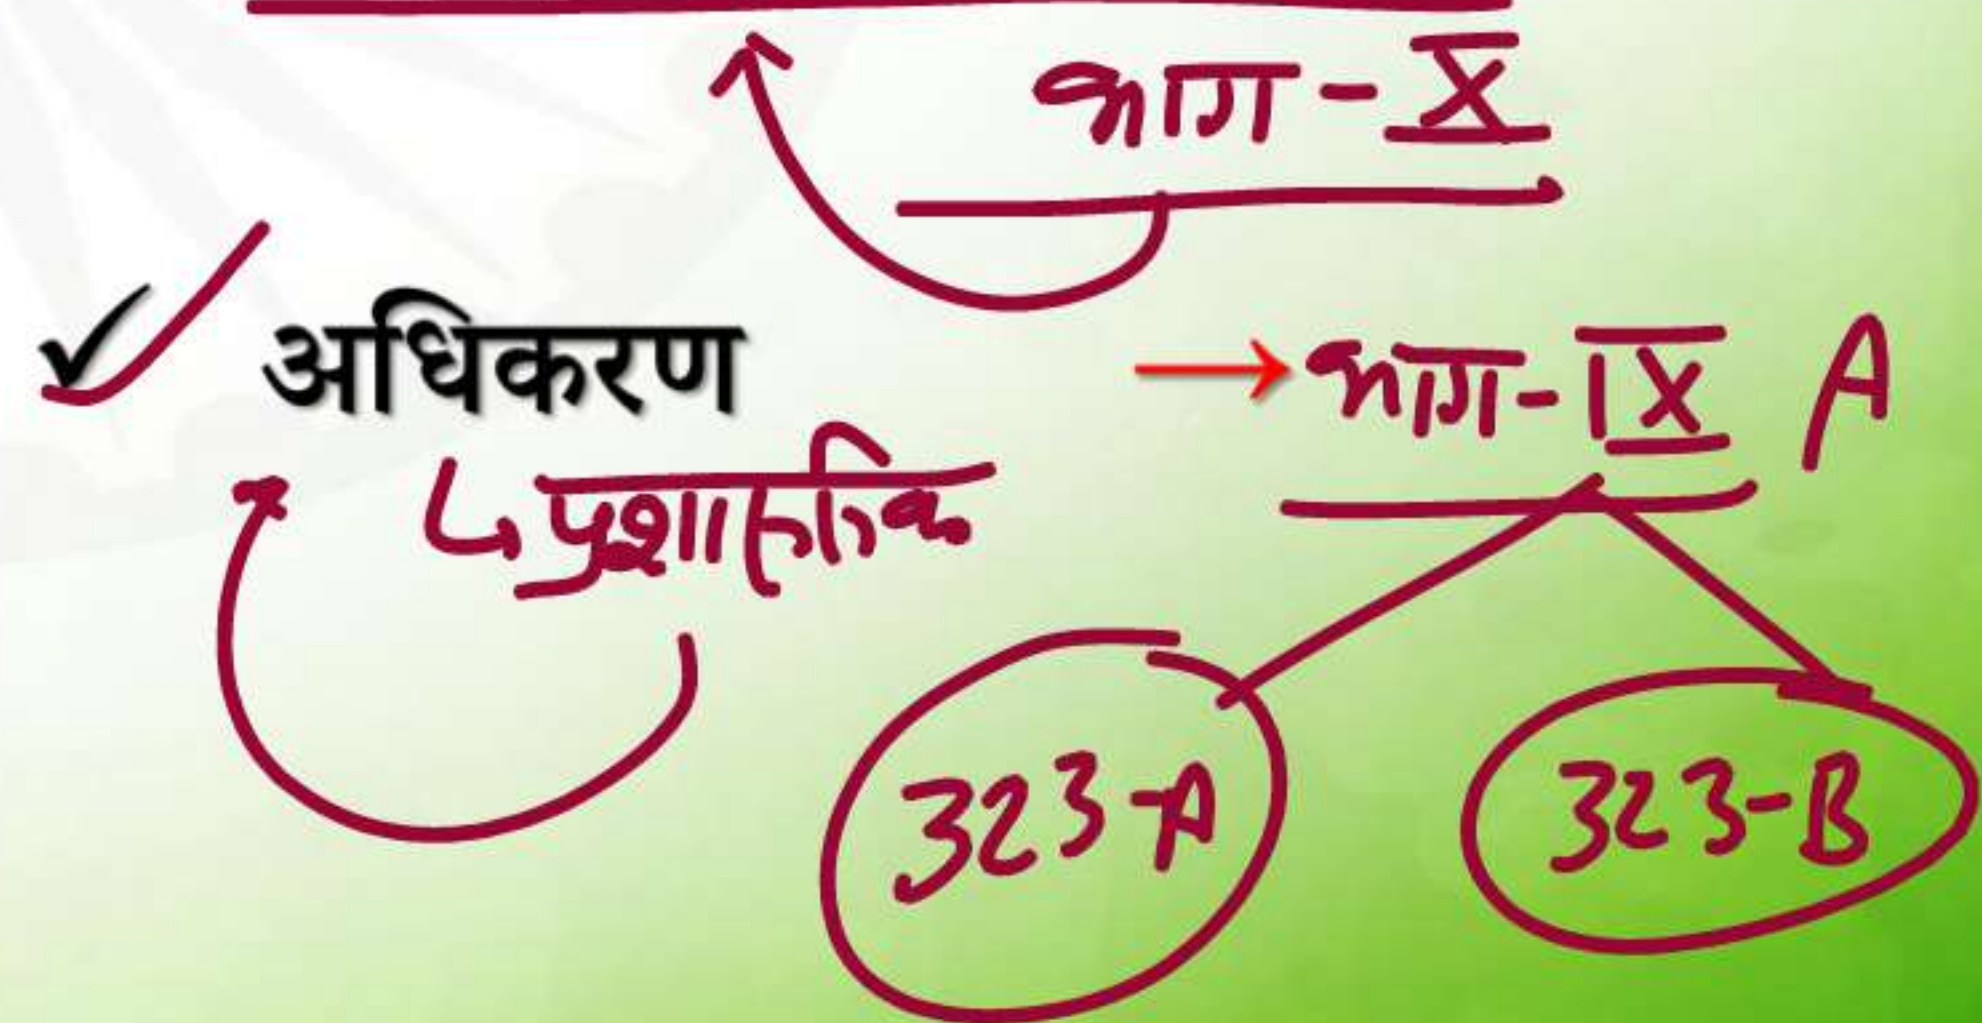 भाग - X
✓ अधिकरण → भाग - IX A
↳ प्रशासनिक
323-A 323-B